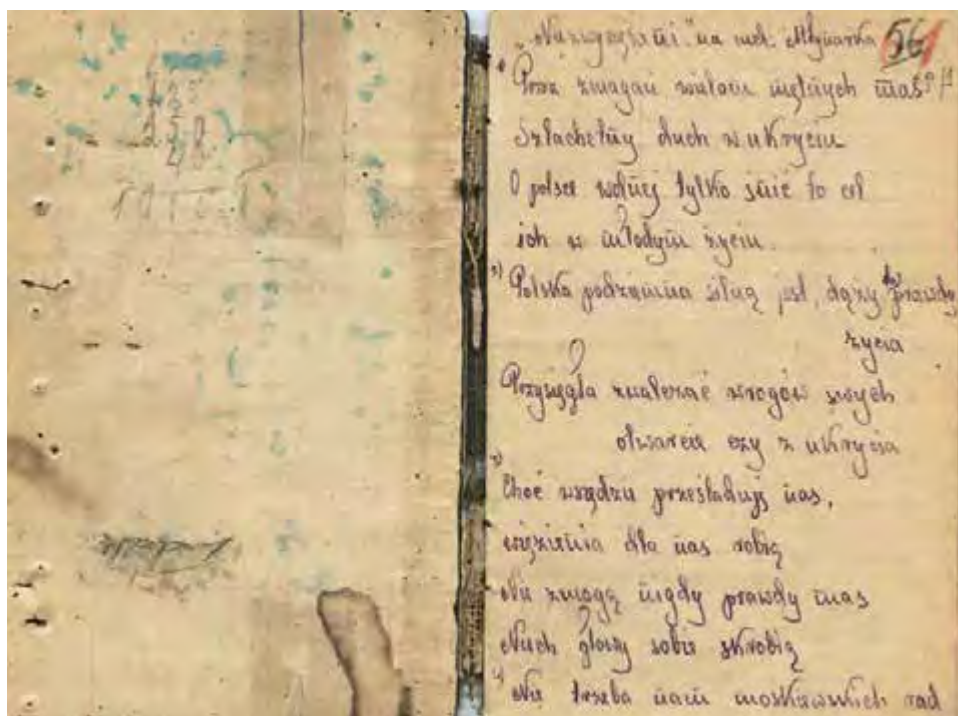 "Niezwyciężeni" na mel. Młynarka 56
1) Przez zmagań mężnych mas
Szlachetny duch w ukryciu
O polsce wolnej tylko śnić to cel
ich w młodym życiu.
2) Polska podziemna siłą jest, dąży do prawdy
życia
Przysięgła zwalczać wrogów swych
otwarcie czy z ukrycia
3) Choć wszędzie prześladują nas,
więzienia dla nas robią
Nie zmogą nigdy prawdy mas
Niech głowy sobie skrobią
4) Nie trzeba nam moskiewskich rad